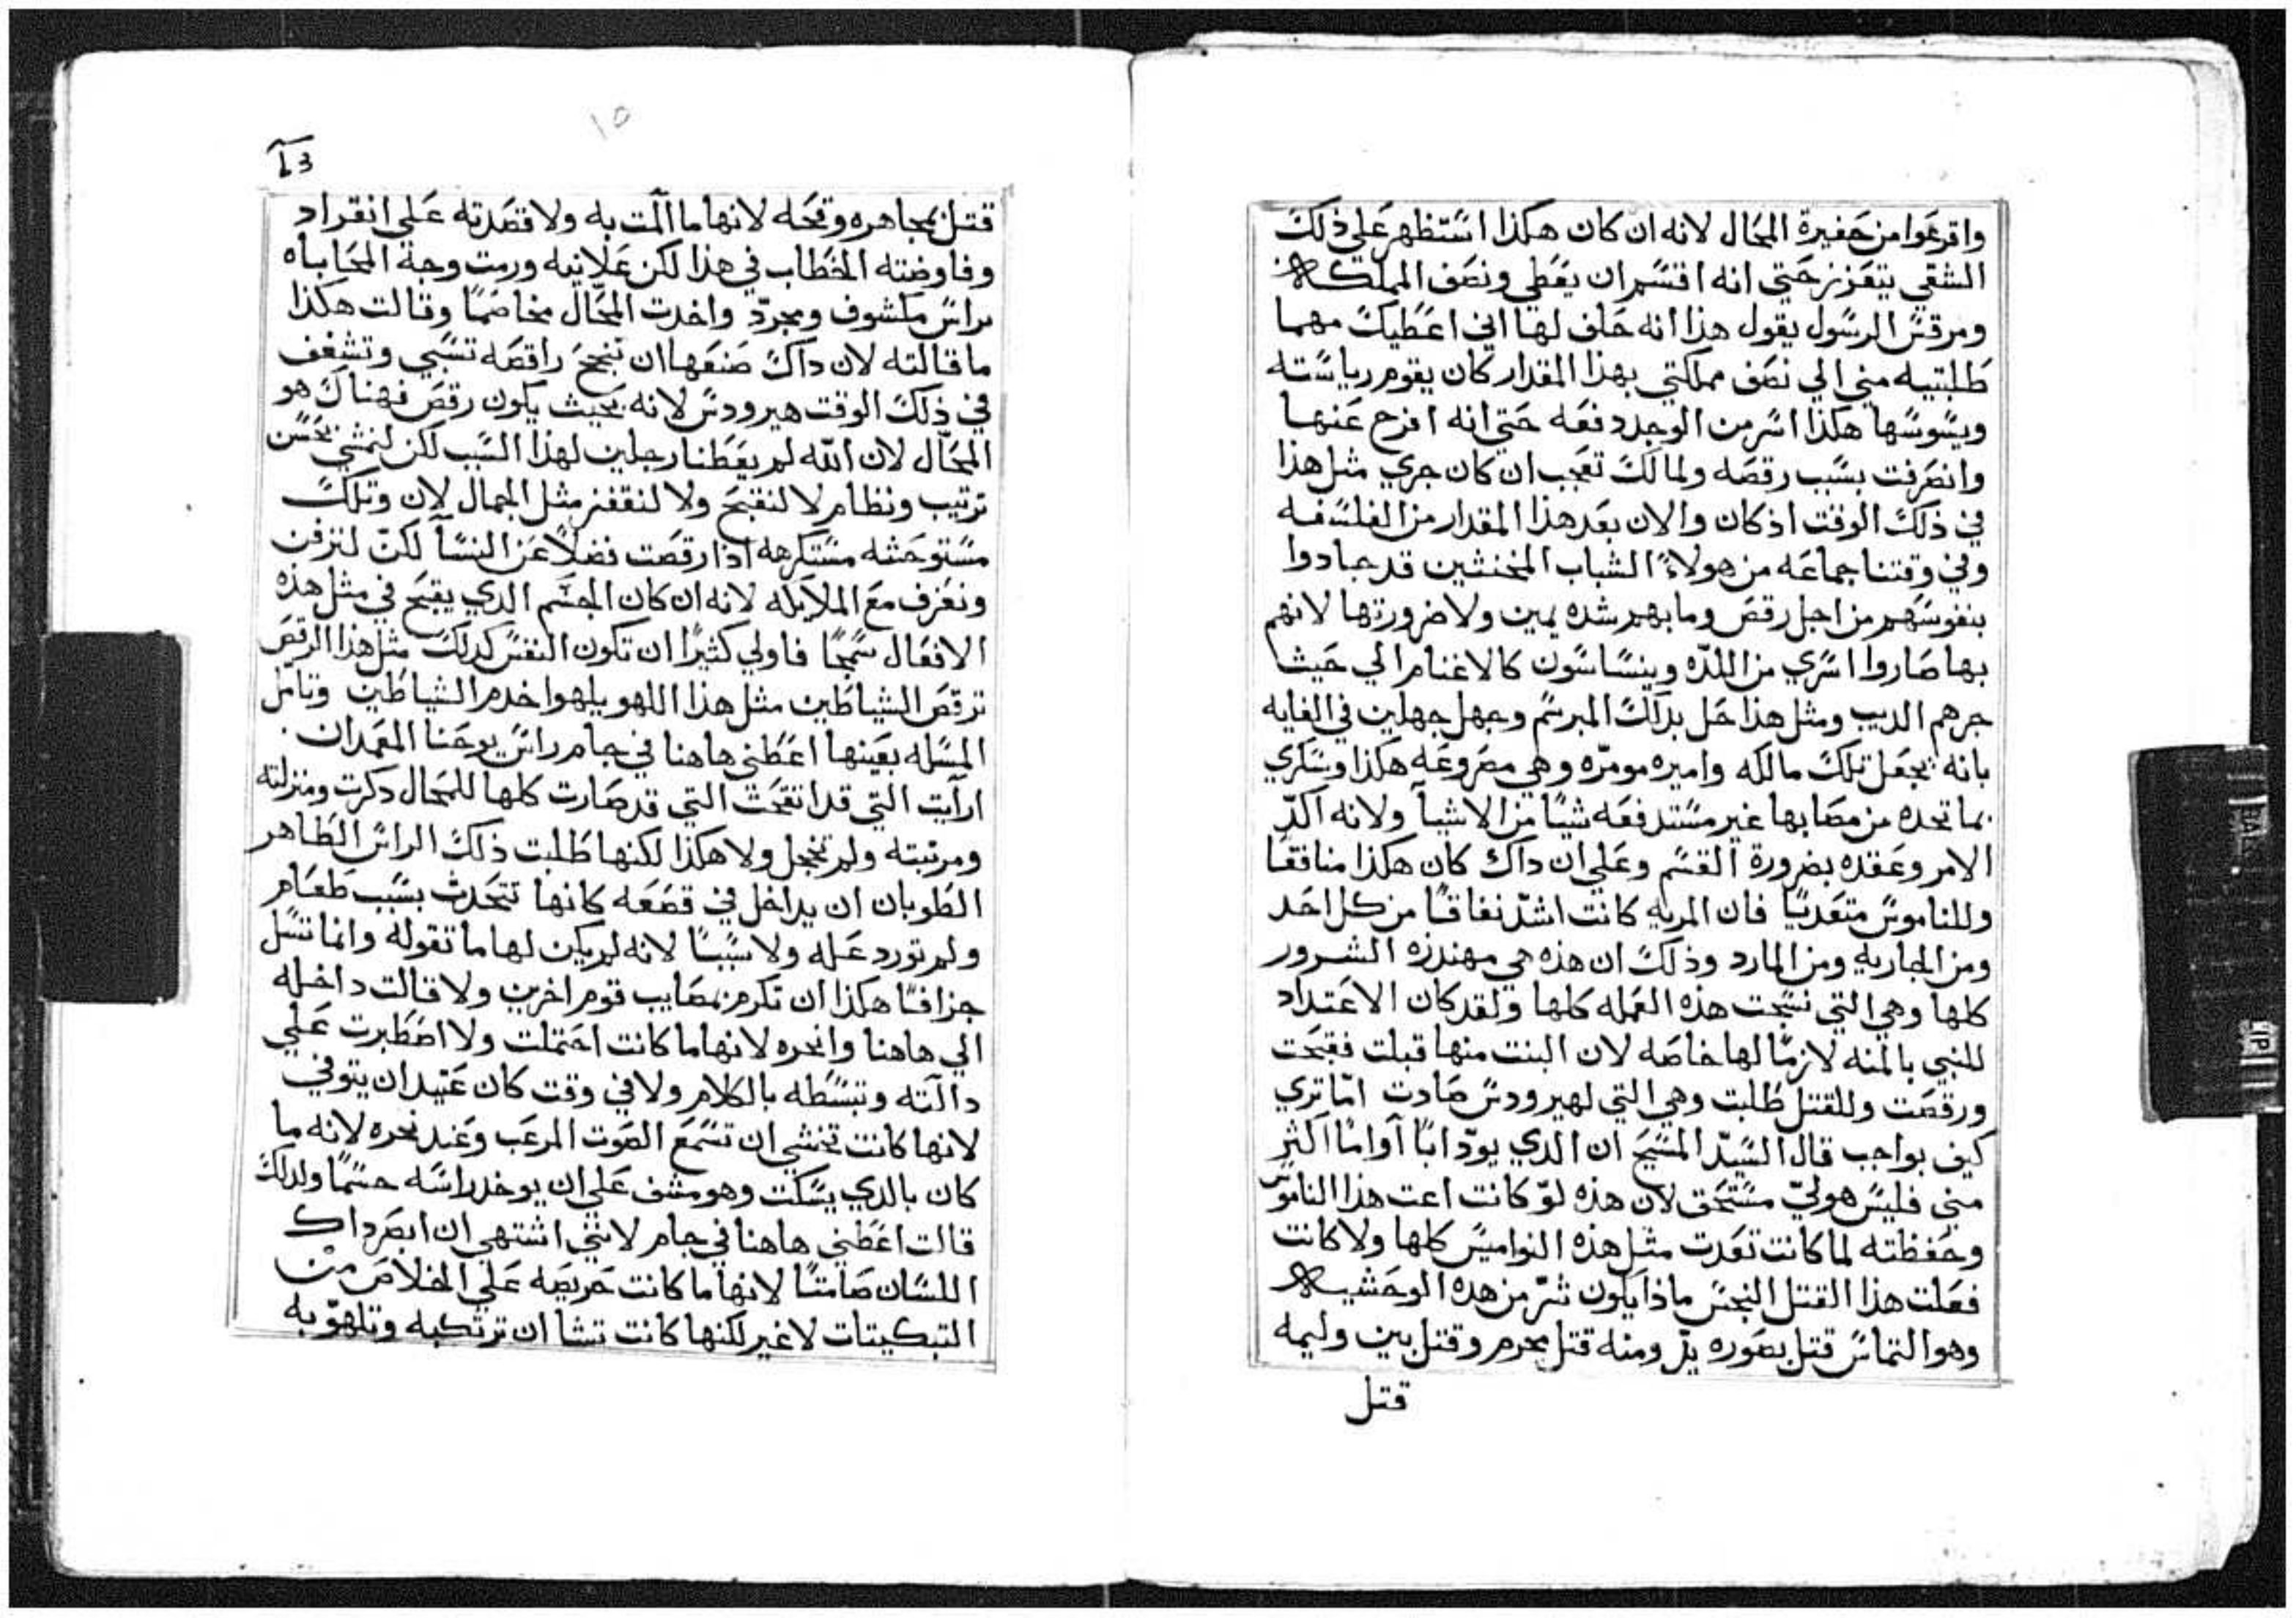 واقرعوا من حفيرة المحال لانه ان كان هكذا استظهر على ذلك
الشقي يتعزز حتي انه اقسم ان يعطي ونصف المملكه
ومرقس الرسول يقول هذا انه حلف لها اني اعطيك مهما
طلبتيه مني الي نصف مملكتي بهذا المقدار كان يقوم رياسته
ويسوسها هكذا اسر من الوجد دفعه حتي انه افرح عنها
وانصرفت بسبب رقصه ولما لك تعجب ان كان جري مثل هذا
في ذلك الوقت اذ كان والان بعد هذا المقدار من الفلسفه
وفي وقتنا جماعه من هولاء الشباب المخنثين قد جادوا
بنفوسهم من اجل رقص وما بهم شده يمين ولا ضرورتها لانهم
بها صاروا اسري من اللذه وينساسون كالاغنام الي حيث
جرهم الديب ومثل هذا حل بدلك المبرسم وجهل جهلين في الغايه
بانه يجعل تلك مالكه واميره مومرّه وهي مصروعه هكذا وسكري
بما تجده من مصابها غير مستدفعه شيًا من الاشيآ ولانه اكدّ
الامر وعقده بضرورة القسم وعلي ان داك كان هكذا منافقًا
وللناموس متعديًا فان المريه كانت اشدّ نفاقًا من كل احد
ومن الجاريه ومن المارد وذلك ان هذه هي مهندزه الشرور
كلها وهي التي نسجت هذه العمله كلها ولقد كان الاعتداد
للنبي بالمنه لازمًا لها خاصه لان البنت منها قبلت فقبحت
ورقصت وللقتل طلبت وهي التي لهيرودس صادت امّا تري
كيف بواجب قال السيّد المسيح ان الدي يودّ ابًا آو امًا اكثر
مني فليس هو ليّ مستحق لان هذه لوّ كانت اعت هذا الناموس
وحفظته لما كانت تعدت مثل هذه النواميس كلها ولا كانت
فعلت هذا القتل النجس ماذا يكون شرّ من هده الوحشيه
وهو التماس قتل بصوره يدّ ومنه قتل بحرم وقتل بين وليمه
قتل
١٥
قتل بمجاهره وقحه لانها ما آلت به ولا قصدته علي انفراد
وفاوضته الخطاب في هذا لكن علانيه ورمت وجة المحاباه
براس مكشوف ومجردّ واخدت المحّال مخاصمًا وقالت هكذا
ما قالته لان داك صنعها ان تنجح راقصه تسبي وتشغف
في ذلك الوقت هيرودس لانه بحيث يكون رقص فهناك هو
المحّال لان الله لم يعطنا رجلين لهذا السبب لكن لنمشي بحسن
ترتيب ونظام لا لنقبح ولا لنقفز مثل الجمال لان وتلك
مستوحشه مستكرهه اذا رقصت فضلاً عن النسآ لكنّ لنزفن
ونعزف مع الملايكه لانه ان كان الجسم الدي يقبح في مثل هذه
الافعال سمجًا فاولي كثيرًا ان تكون النفس كدلك مثل هذا الرقص
ترقص الشياطين مثل هذا اللهو يلهوا خدم الشياطين وتامّل
المسله بعينها اعطني هاهنا في جام راس يوحنا المعمدان
ارآيت التي قد اتقحت التي قد صارت كلها للمحال دكرت ومنزلته
ومرتبته ولم تخجل ولا هكذا لكنها طلبت ذلك الراس الطاهر
الطوبان ان يداخل في قصعه كانها تتحدث بسبب طعام
ولم تورد عله ولا سببًا لانه لم يكن لها ما تقوله وانما تسل
جزافًا هكذا ان تكرم بمصايب قوم اخرين ولا قالت داخله
الي هاهنا وانحره لانها ما كانت احتملت ولا اصطبرت علي
دالّته وتبسّطه بالكلام ولا في وقت كان عتيد ان يتوفي
لانها كانت تخشي ان تسمع الصوت المرعب وعند نحره لانه ما
كان بالدي يسكت وهو مشف علي ان يوخد راسه حسمًا ولدلك
قالت اعطني هاهنا في جام لانني اشتهي ان ابصر داك
اللسان صامتًا لانها ما كانت حريصه علي الخلاص من
التبكيتات لا غير لكنها كانت تشا ان ترتكبه وتلهوّ به